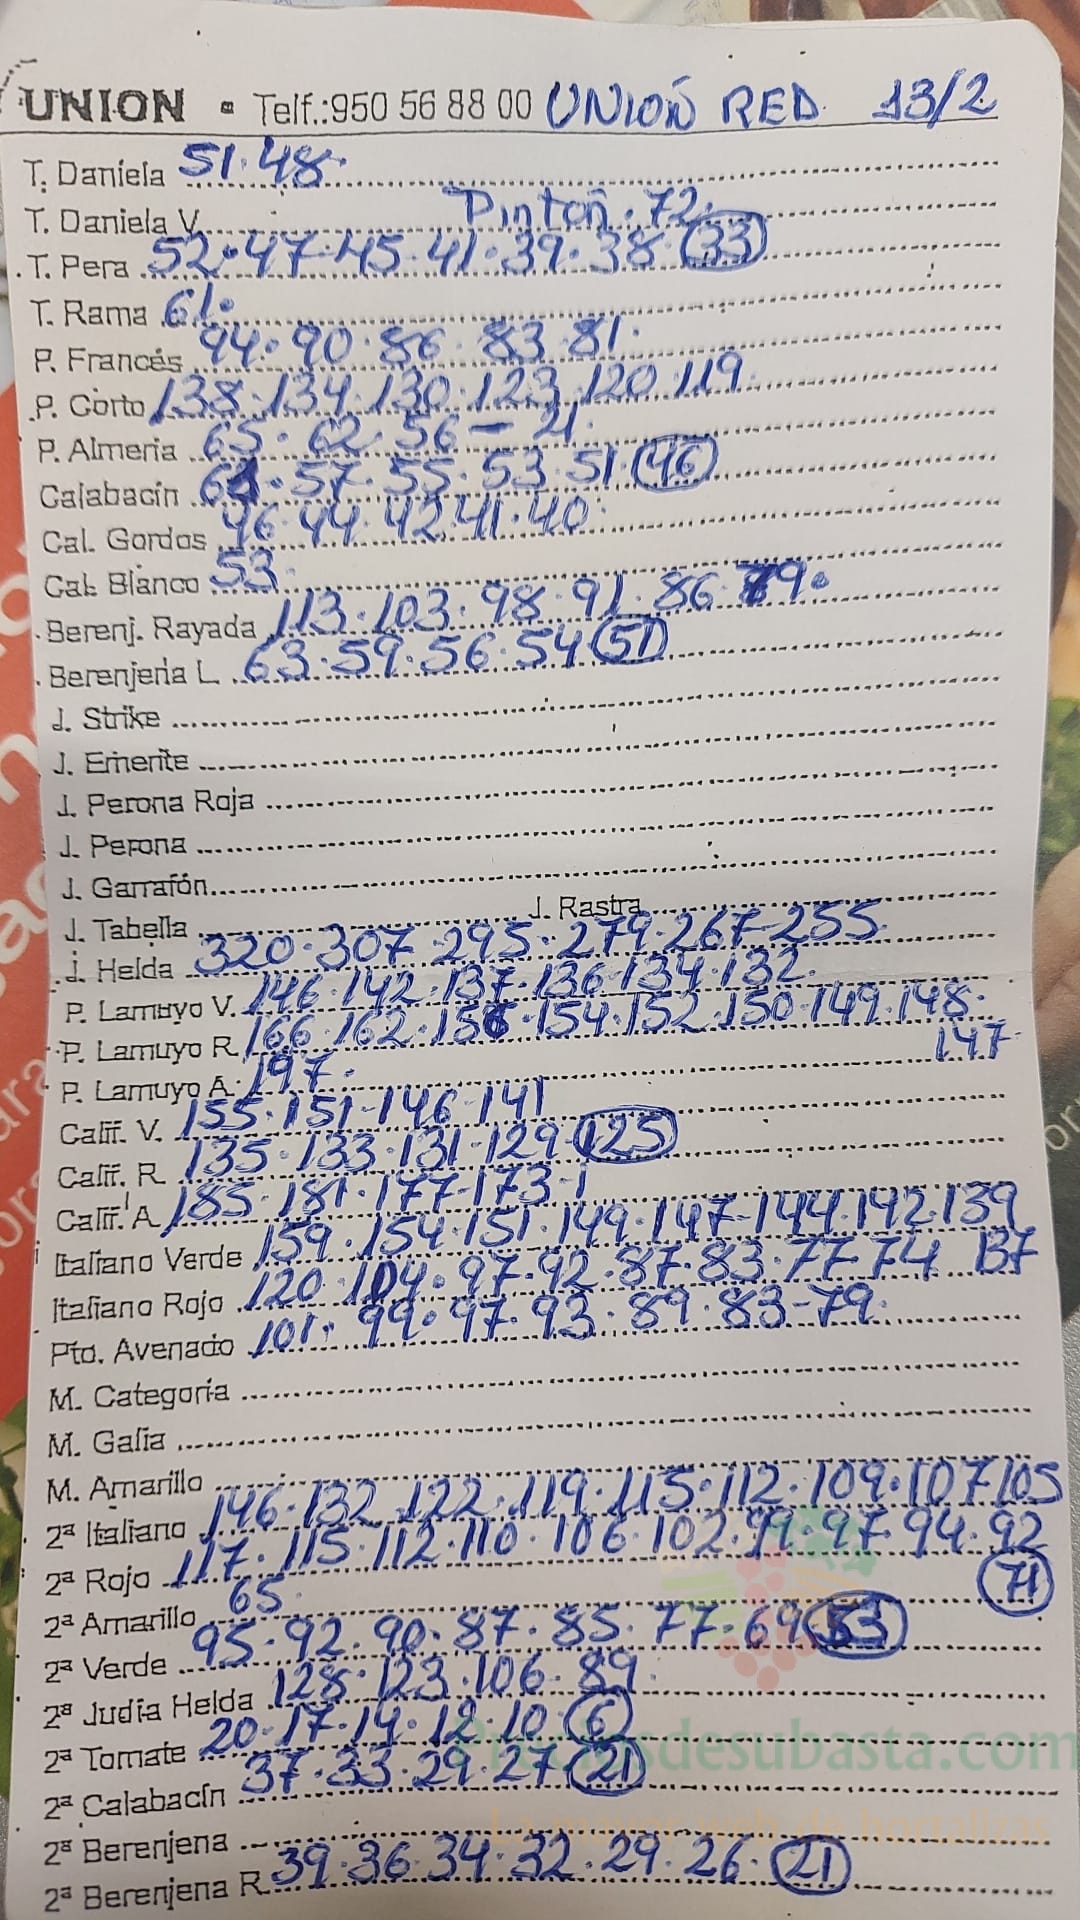 UNION - Telf.:950 56 88 00 UNION RED 13/2
T. Daniela 51·48·
T. Daniela V. Pinton·72·
T. Pera 52·47·45·41·39·38·(33)
T. Rama 61·
P. Francés 94·90·86·83·81·
P. Corto 138·134·130·123·120·119
P. Almeria 65·62·56-21·
Calabacín 61·57·55·53·51·(46)
Cal. Gordos 46·44·42·41·40·
Cal. Blanco 53·
Berenj. Rayada 113·103·98·91·86·79·
Berenjena L. 63·59·56·54(51)
J. Strike
J. Emerite
J. Perona Roja
J. Perona
J. Garrafón
J. Tabella J. Rastra
J. Helda 320·307·295·279·267-255
P. Lamuyo V. 146·142·137·136·134·132·
P. Lamuyo R. 166·162·156·154·152·150·149·148·
147
P. Lamuyo A. 197·
Calif. V. 155·151-146-141
Calif. R. 135·133·131-129(125)
Calif. A. 185·181·177-173-1
Italiano Verde 159·154·151·149·147-144·142·139
137
Italiano Rojo 120·104·97·92·87·83·77·74
Pto. Avenado 101·99·97·93·89·83-79·
M. Categoría
M. Galia
M. Amarillo
2ª Italiano 146·132·122·119·115·112·109·107 105
2ª Rojo 117·115·112·110·106·102·99·97·94·92
(71)
2ª Amarillo 65·
2ª Verde 95·92·90·87·85·77·69(53)
2ª Judía Helda 128·123·106·89·
2ª Tomate 20·17·14·12·10·(6)
2ª Calabacín 37·33·29·27·(21)
2ª Berenjena
2ª Berenjena R. 39·36·34·32·29·26·(21)
Preciosdesubasta.com
La mayor web de hortalizas